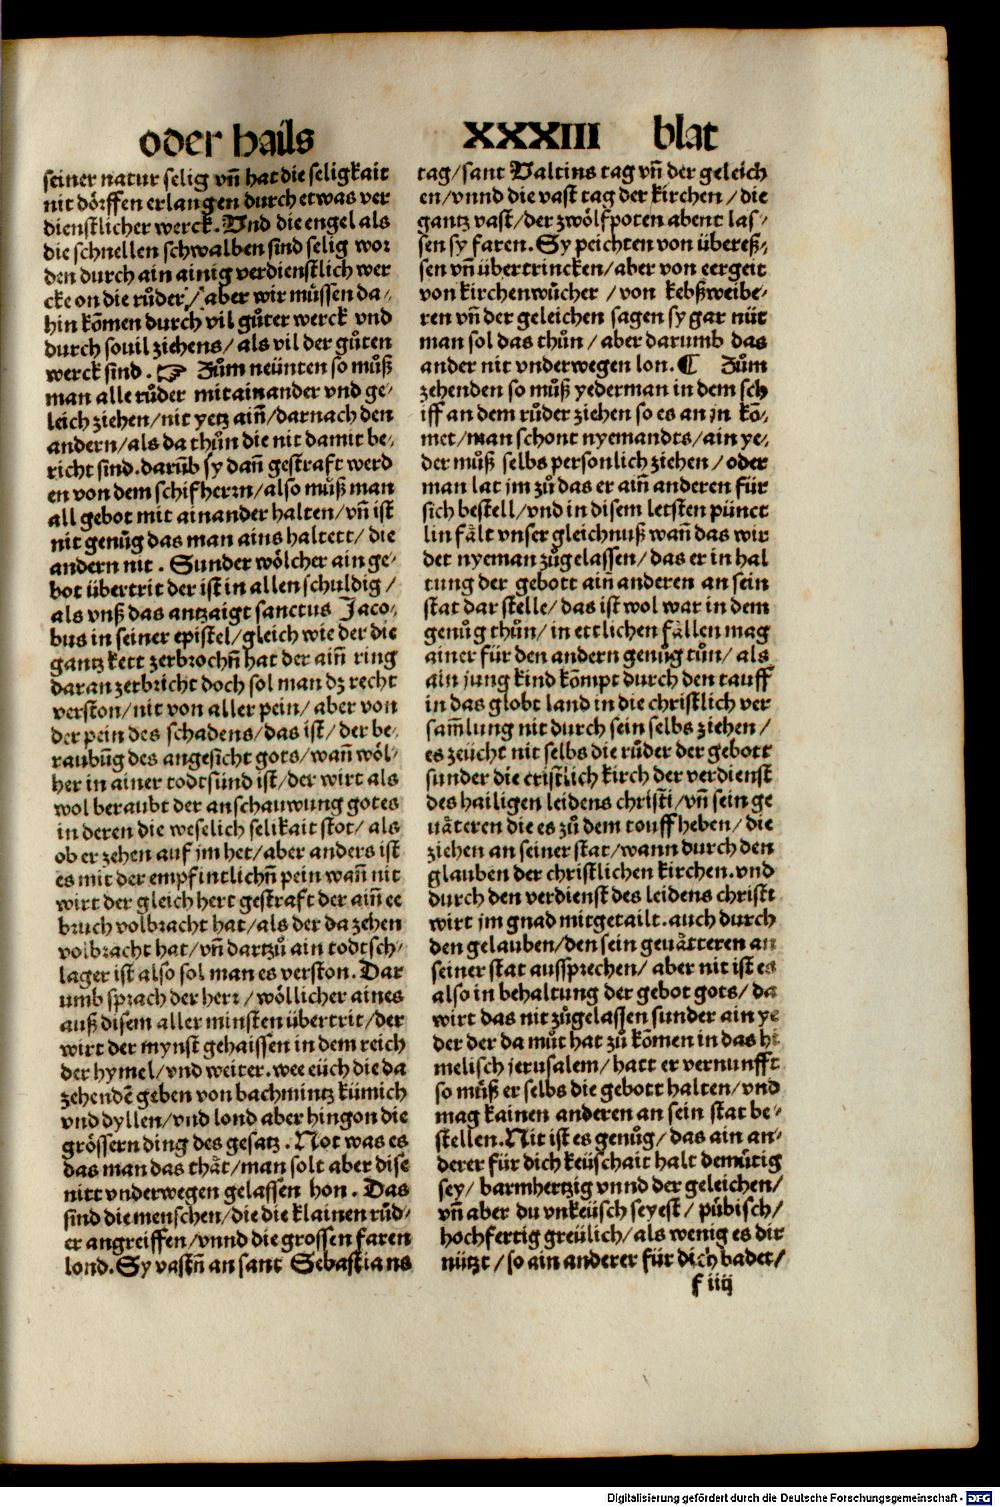 oder hails
seiner natur selig vñ hat die seligkait
nit dörffen erlangen durch etwas ver
dienstlicher werck. Vnd die engel als
die schnellen schwalben sind selig wor
den durch ain ainig verdienstlich wer
cke on die růder / aber wir müssen da⸗
hin kõmen durch vil gůter werck vnd
durch souil ziehens / als vil der gůten
werck sind . ☞ Zům neünten so můß
man alle růder mitainander vnd ge⸗
leich ziehen / nit yetz aiñ / darnach den
andern / als da thůn die nit damit be⸗
richt sind. darũb sy dañ gestraft werd
en von dem schifherrn / also můß man
all gebot mit ainander halten / vñ ist
nit genůg das man ains haltett / die
andern nit . Sunder wölcher ain ge⸗
bot übertrit der ist in allen schuldig /
als vnß das antzaigt sanctus Jaco⸗
bus in seiner epistel / gleich wie der die
gantz kett zerbrochñ hat der aiñ ring
daran zerbricht doch sol man dz recht
verston / nit von aller pein / aber von
der pein des schadens / das ist / der be⸗
raubũg des angesicht gots / wañ wöl⸗
her in ainer todtsünd ist / der wirt als
wol beraubt der anschauwung gotes
in deren die weselich selikait stot / als
ob er zehen auf jm het / aber anders ist
es mit der empfintlichñ pein wañ nit
wirt der gleich hert gestraft der aiñ ee
bruch volbracht hat / als der da zehen
volbracht hat / vñ dartzů ain todtsch⸗
lager ist also sol man es verston. Dar
umb sprach der herr / wöllicher aines
auß disem aller minsten übertrit / der
wirt der mynst gehaissen in dem reich
der hymel / vnd weiter. wee eüch die da
zehendẽ geben von bachmintz kümich
vnd dyllen / vnd lond aber hingon die
grössern ding des gesatz . Not was es
das man das thät / man solt aber dise
nitt vnderwegen gelassen hon . Das
sind die menschen / die die klainen růd⸗
er angreiffen / vnnd die grossen faren
lond. Sy vastñ an sant Sebastians
XXXIII blat
tag / sant Valtins tag vñ der geleich
en / vnnd die vast tag der kirchen / die
gantz vast / der zwölfpoten abent las⸗
sen sy faren. Sy peichten von übereß⸗
sen vñ übertrincken / aber von eergeit
von kirchenwücher / von kebßweibe⸗
ren vñ der geleichen sagen sy gar nüt
man sol das thůn / aber darumb das
ander nit vnderwegen lon. ¶ Zům
zehenden so můß yederman in dem sch
iff an dem růder ziehen so es an jn kõ⸗
met / man schont nyemandts / ain ye⸗
der můß selbs personlich ziehen / oder
man lat jm zů das er aiñ anderen für
sich bestell / vnd in disem letsten pünct
lin fält vnser gleichnuß wañ das wir
det nyeman zůgelassen / das er in hal
tung der gebott aiñ anderen an sein
stat dar stelle / das ist wol war in dem
genůg thůn / in ettlichen fällen mag
ainer für den andern genůg tůn / als
ain jung kind kõmpt durch den tauff
in das globt land in die christlich ver
sam̃lung nit durch sein selbs ziehen /
es zeücht nit selbs die růder der gebott
sunder die cristlich kirch der verdienst
des hailigen leidens christi / vñ sein ge
uäteren die es zů dem touff heben / die
ziehen an seiner stat / wann durch den
glauben der christlichen kirchen. vnd
durch den verdienst des leidens christi
wirt jm gnad mitgetailt. auch durch
den gelauben / den sein geuätteren an
seiner stat aussprechen / aber nit ist es
also in behaltung der gebot gots / da
wirt das nit zůgelassen sunder ain ye
der der da můt hat zů kõmen in das hi
melisch jerusalem / hatt er vernunfft
so můß er selbs die gebott halten / vnd
mag kainen anderen an sein stat be⸗
stellen. Nit ist es genůg / das ain an⸗
derer für dich keüschait halt demütig
sey / barmhertzig vnnd der geleichen /
vñ aber du vnkeüsch seyest / pübisch /
hochfertig greülich / als wenig es dir
nützt / so ain anderer für dich badet /
f iiij
Digitalisierung gefördert durch die Deutsche Forschungsgemeinschaft - DFG